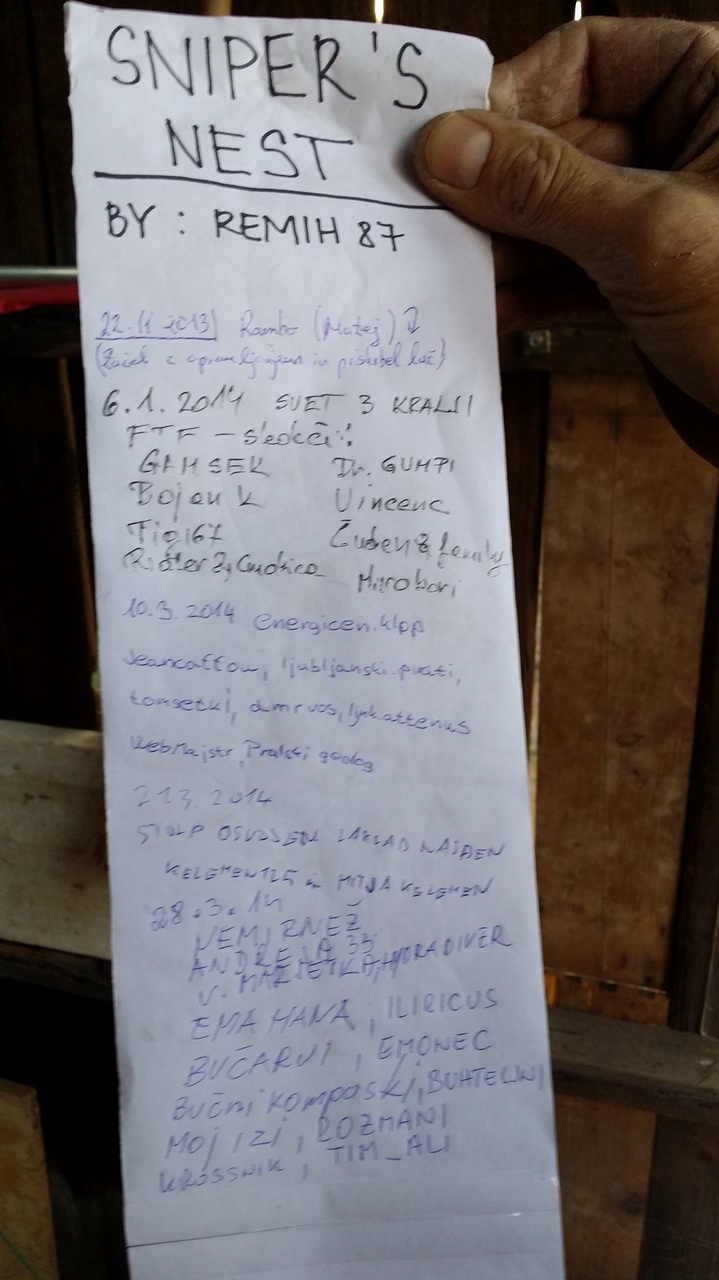 SNIPER'S
NEST
BY : REMIH 87
22.11.2013 Rambo (Matej)
in
6.1.2014 SVET 3 KRALJI
FTF -
GAMSEK Dr. GUMPI
Bojan K Vincenc
Tig167 & family
Mirobori
10.3.2014 energicen.klop
Jeancattou, ljubljanski.pirati,
tomsetki, dmrvos, ljyh.attenus
WebMajstr, Pralsti geolog
21.3.2014
STOLP OSVOJEN ZAKLAD NAJDEN
KELEMEN125 in MITJA KELEMEN
28.3.14
NEMIRNEŽ
ANDREJA 33
V. MARJETKA, HYDRADIVER
EMA HANA, ILIRICUS
BUČARVI, EMONEC
Bučni kompaski, BUHTELINI
Moj IZI, ROZMANI
KROSSNIK, TIM_ALI